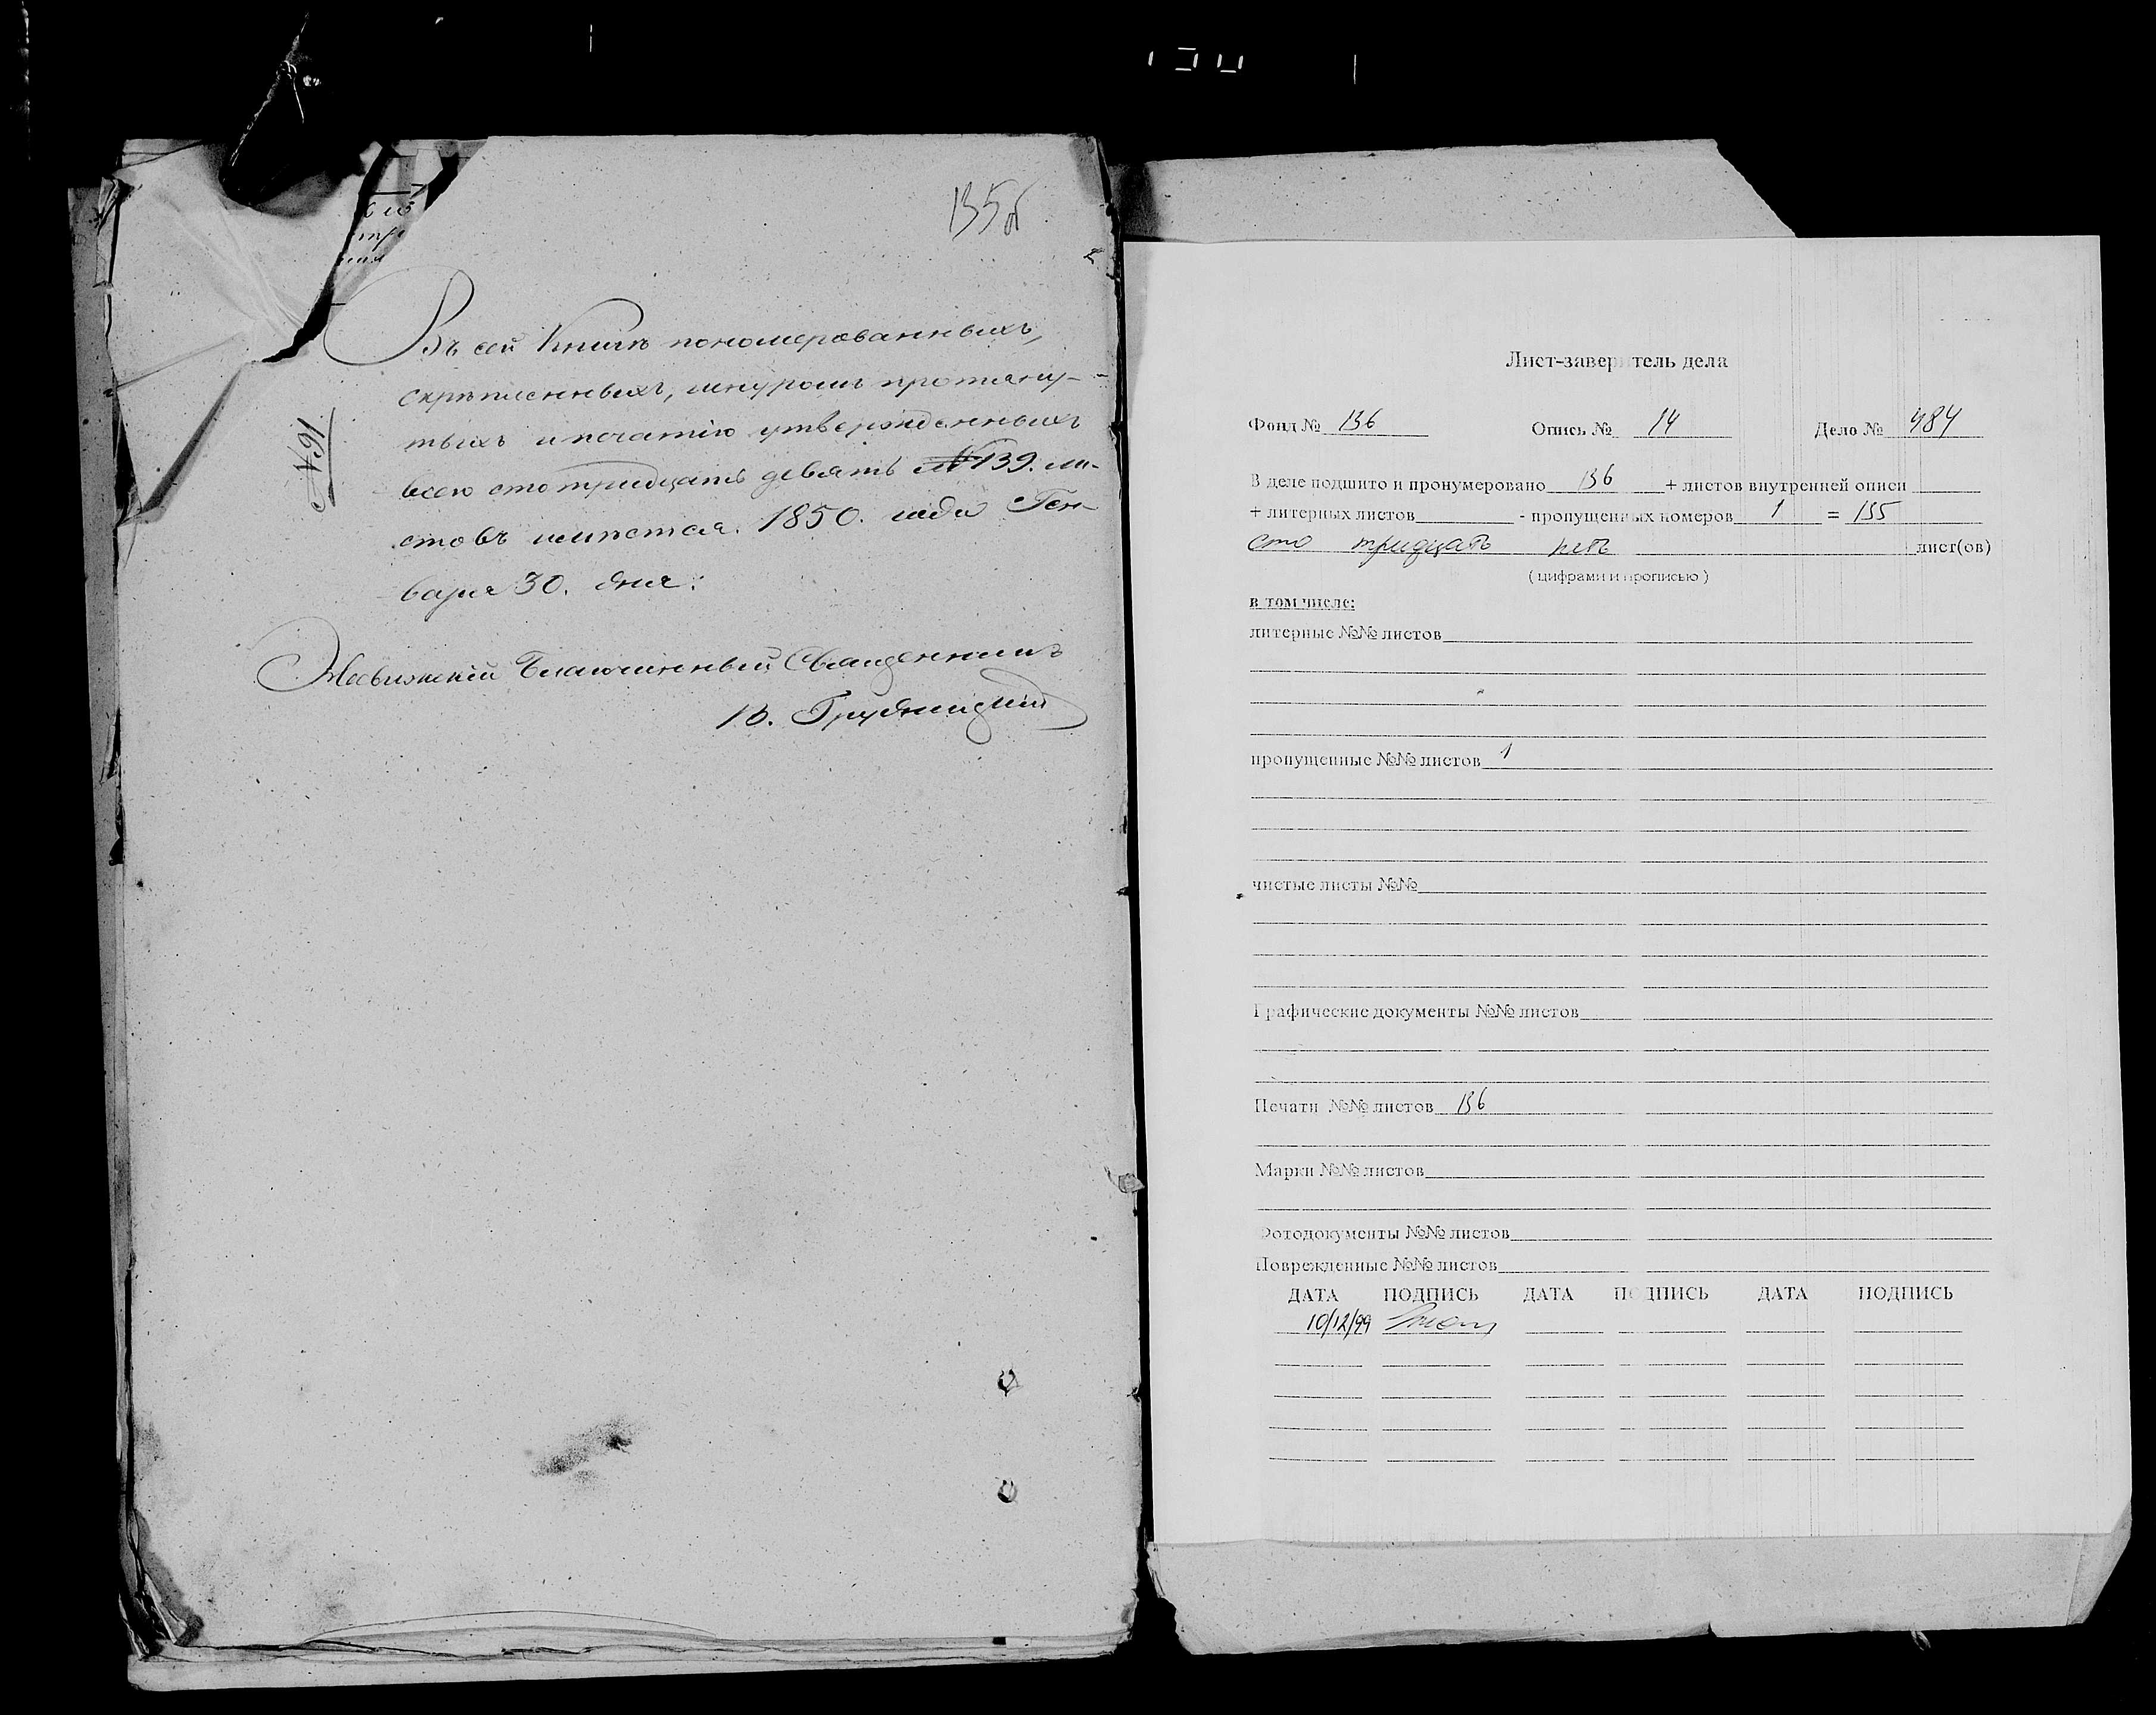 135об
Въ сей Книгѣ пономерованныхъ,
скрѣпленныхъ, шнуромъ протяну-
тыхъ и печатію утвержденныхъ
всего сто тридцать девять №139. ли-
стовъ имѣется. 1850. года Ген-
варя 30. дня:
№91
Несвижскій Благочинный Священникъ
В. Грудницкій
Лист-заверитель дела
Фонд № 136 Опись № 14 Дело № 484
В деле подшито и пронумеровано 136 + листов внутренней описи
+ литерных листов - пропущенных номеров 1 = 135
сто тридцать пять лист(ов)
( цифрами и прописью )
в том числе:
литерные №№ листов
пропущенные №№ листов 1
чистые листы №№
Графические документы №№ листов
Печати №№ листов 136
Марки №№ листов
Фотодокументы №№ листов
Поврежденные №№ листов
ДАТА ПОДПИСЬ ДАТА ПОДПИСЬ ДАТА ПОДПИСЬ
10/12/99